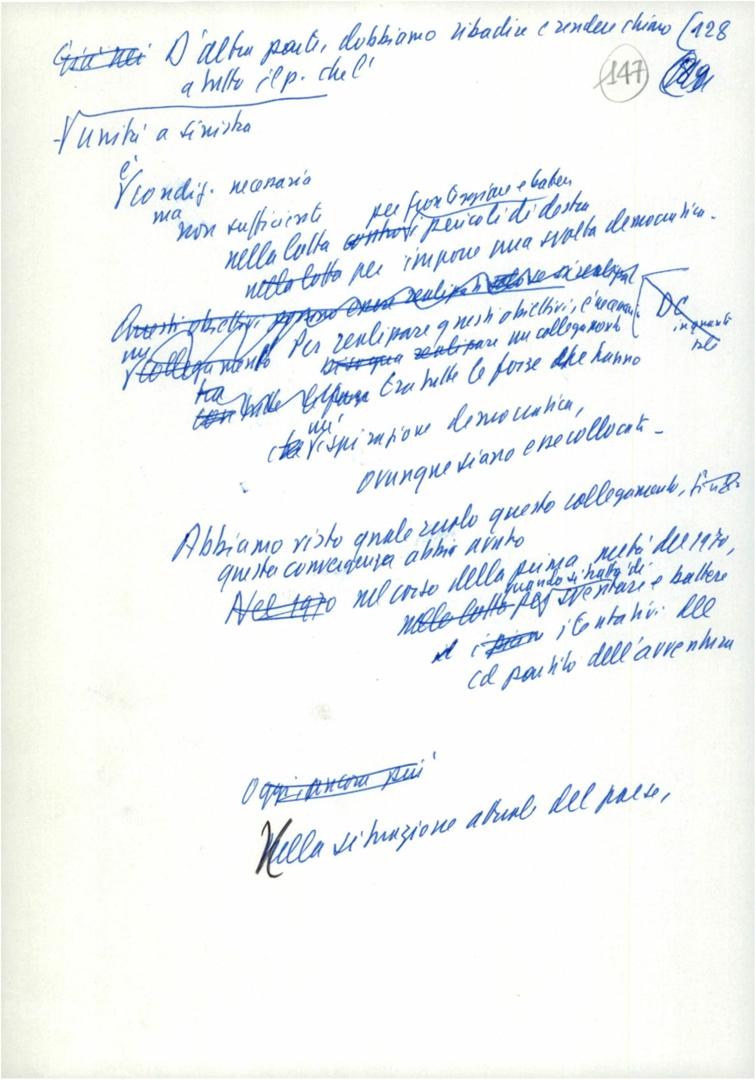 D'altra parte, dobbiamo ribadire e rendere chiaro (128
a tutto il p. che l'
147
unità a sinistra
è
condiz. necessaria
ma
non sufficiente
per fronteggiare e batter
nella lotta contro i pericoli di destra
nella lotta per imporre una svolta democratica.
Questi obiettivi possono essere realizzati
un collegamento Per realizzare questi obiettivi, è necessario
DC
in quanto
tale
Bisogna realizzare un collegamento
tra
con tutte le forze tra tutte le forze che hanno
un'
ispirazione democratica,
ovunque siano esse collocate.
Abbiamo visto quale ruolo questo collegamento,
questa convergenza abbia avuto
Nel 1970 nel corso della prima metà del 1970,
quando si trattò di
nella lotta per sventare e battere
i piani i tentativi del
cd partito dell'avventura
Oggi, ancora più
Nella situazione attuale del paese,